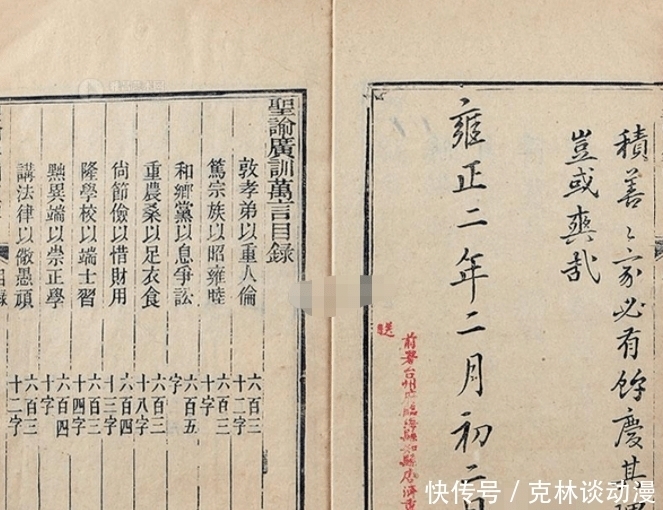 積善〻家必有餘慶其理
豈或爽哉
雍正二年二月初二日
前署台州府臨海縣知縣
聖諭廣訓萬言目錄
敦孝弟以重人倫 六百三十二字
篤宗族以昭雍睦 六百三十字
和鄉黨以息爭訟 六百五字
重農桑以足衣食 六百三十八字
尚節儉以惜財用 六百四十三字
隆學校以端士習 六百三十四字
黜異端以崇正學 六百四十字
講法律以儆愚頑 六百三十二字
快传号/克林谈动漫